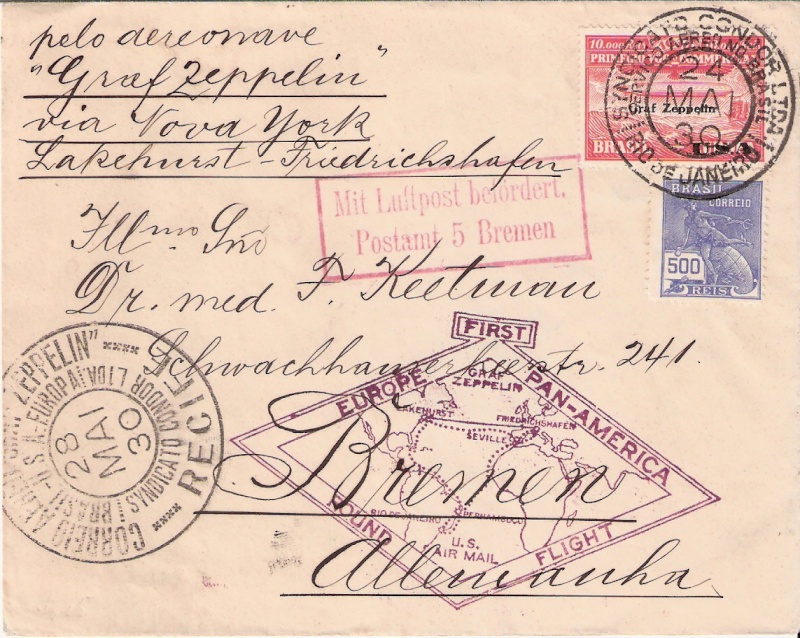 pelo aereonave
"Graf Zeppelin"
via Nova York
Lakehurst-Friedrichshafen
Graf Zeppelin
BRASIL
U.S.A.
SYNDICATO CONDOR LTDA
SERVIÇO AEREO NO BRASIL
24
MAI
30
RIO DE JANEIRO
BRASIL
CORREIO
500
REIS
Mit Luftpost befördert.
Postamt 5 Bremen
Illmo Snr
Dr. med. F. Keetman
Schwachhauserheerstr. 241.
Bremen
Allemanha
FIRST
EUROPE PAN-AMERICA
ROUND FLIGHT
GRAF
ZEPPELIN
LAKEHURST
FRIEDRICHSHAFEN
SEVILLE
RIO DE JANEIRO
PERNAMBUCO
U.S.
AIR MAIL
CORREIO AEREO "GRAF ZEPPELIN"
BRASIL-U.S.A.-EUROPA
SYNDICATO CONDOR LTDA
28
MAI
30
RECIFE